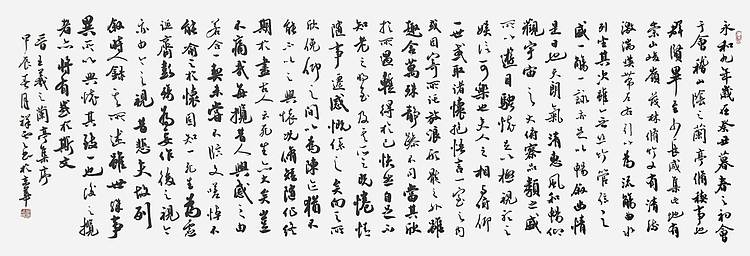 永和九年歲在癸丑暮春之初會
于會稽山陰之蘭亭脩稧事也
群賢畢至少長咸集此地有
崇山峻嶺茂林脩竹又有清流
激湍暎帶左右引以為流觴曲水
列坐其次雖無絲竹管弦之
盛一觴一詠亦足以暢敘幽情
是日也天朗氣清惠風和暢仰
觀宇宙之大俯察品類之盛
所以遊目騁懷足以極視聽之
娛信可樂也夫人之相與俯仰
一世或取諸懷抱悟言一室之內
或因寄所託放浪形骸之外雖
趣舍萬殊靜躁不同當其欣
於所遇暫得於己快然自足不
知老之將至及其所之既惓情
隨事遷感慨係之矣向之所
欣俛仰之間以為陳迹猶不
能不以之興懷況脩短隨化終
期於盡古人云死生亦大矣豈
不痛哉每攬昔人興感之由
若合一契未嘗不臨文嗟悼不
能喻之於懷固知一死生為虛
誕齊彭殤為妄作後之視今
亦由今之視昔悲夫故列
敘時人錄其所述雖世殊事
異所以興懷其致一也後之攬
者亦將有感於斯文
晉王羲之蘭亭集序
甲辰春月